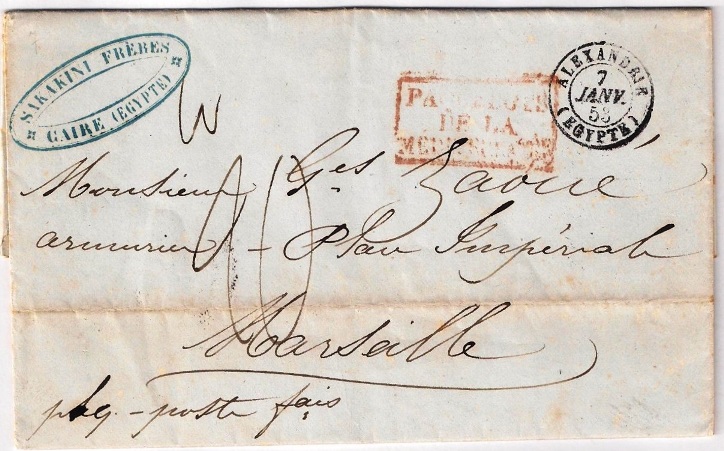 SAKAKINI FRÈRES
CAIRE (EGYPTE)
PAQUEBOT
DE LA
MÉDITERRANÉE
ALEXANDRIE
7
JANV.
53
(EGYPTE)
Monsieur Ges Zaoué
armurier - Place Impériale
10
Marseille
pqt - poste fçais